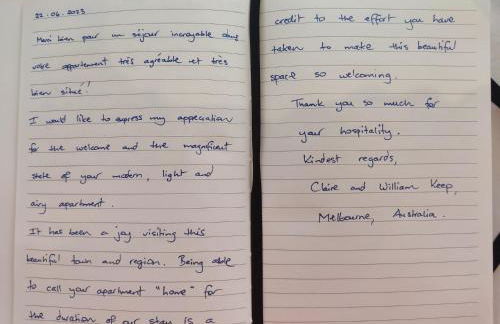 22.06.2023
Merci bien pour un séjour incroyable dans
votre appartement très agréable et très
bien situé!
I would like to express my appreciation
for the welcome and the magnificent
state of your modern, light and
airy apartment.
It has been a joy visiting this
beautiful town and region. Being able
to call your apartment "home" for
the duration of our stay is a
credit to the effort you have
taken to make this beautiful
space so welcoming.
Thank you so much for
your hospitality.
Kindest regards,
Claire and William Keep,
Melbourne, Australia.